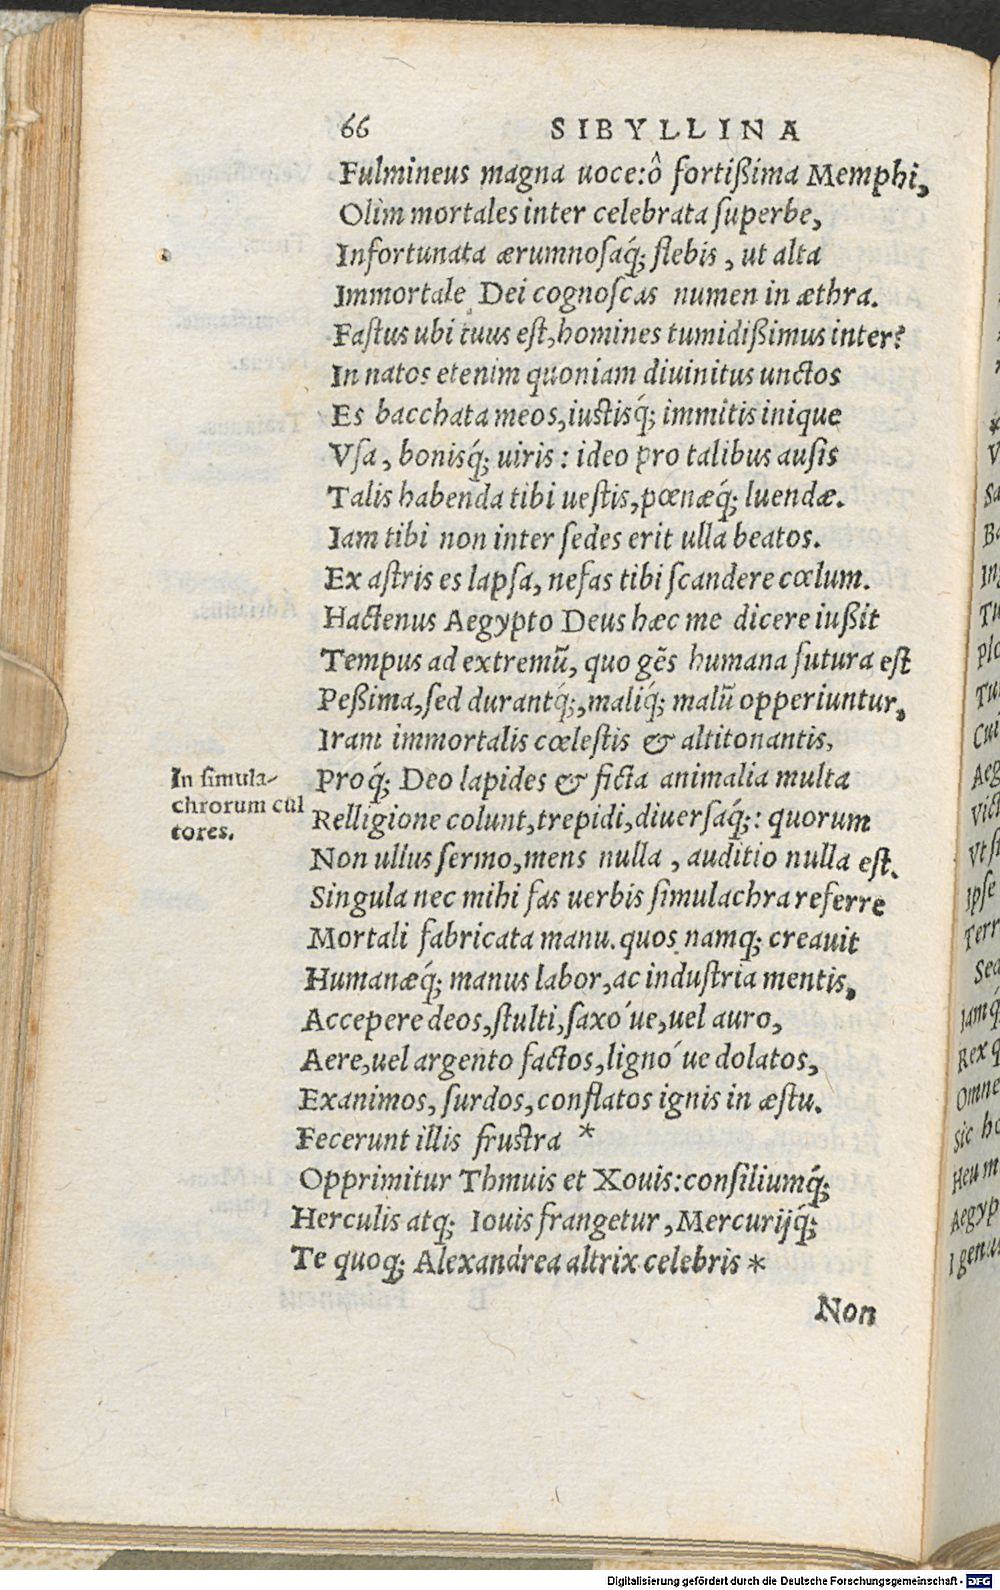 66 SIBYLLINA
Fulmineus magna uoce: ô fortißima Memphi,
Olim mortales inter celebrata superbe,
Infortunata ærumnosaq́; flebis, ut alta
Immortale Dei cognoscas numen in æthra.
Fastus ubi tuus est, homines tumidißimus inter?
In natos etenim quoniam diuinitus unctos
Es bacchata meos, iustisq́; immitis inique
Vsa, bonisq́; uiris: ideo pro talibus ausis
Talis habenda tibi uestis, pœnæq́; luendæ.
Iam tibi non inter sedes erit ulla beatos.
Ex astris es lapsa, nefas tibi scandere cœlum.
Hactenus Aegypto Deus hæc me dicere iußit
Tempus ad extremũ, quo gẽs humana futura est
Peßima, sed durantq́;, maliq́; malũ opperiuntur,
Iram immortalis cœlestis & altitonantis,
In simula-
chrorum cul
tores.
Proq́; Deo lapides & ficta animalia multa
Relligione colunt, trepidi, diuersaq́;: quorum
Non ullus sermo, mens nulla, auditio nulla est.
Singula nec mihi fas uerbis simulachra referre
Mortali fabricata manu. quos namq; creauit
Humanæq́; manus labor, ac industria mentis,
Accepere deos, stulti, saxo ́ue, uel auro,
Aere, uel argento factos, ligno ́ue dolatos,
Exanimos, surdos, conflatos ignis in æstu.
Fecerunt illis frustra *
Opprimitur Thmuis et Xouis: consiliumq́;
Herculis atq; Iouis frangetur, Mercurijq́;
Te quoq; Alexandrea altrix celebris *
Non
Digitalisierung gefördert durch die Deutsche Forschungsgemeinschaft - DFG